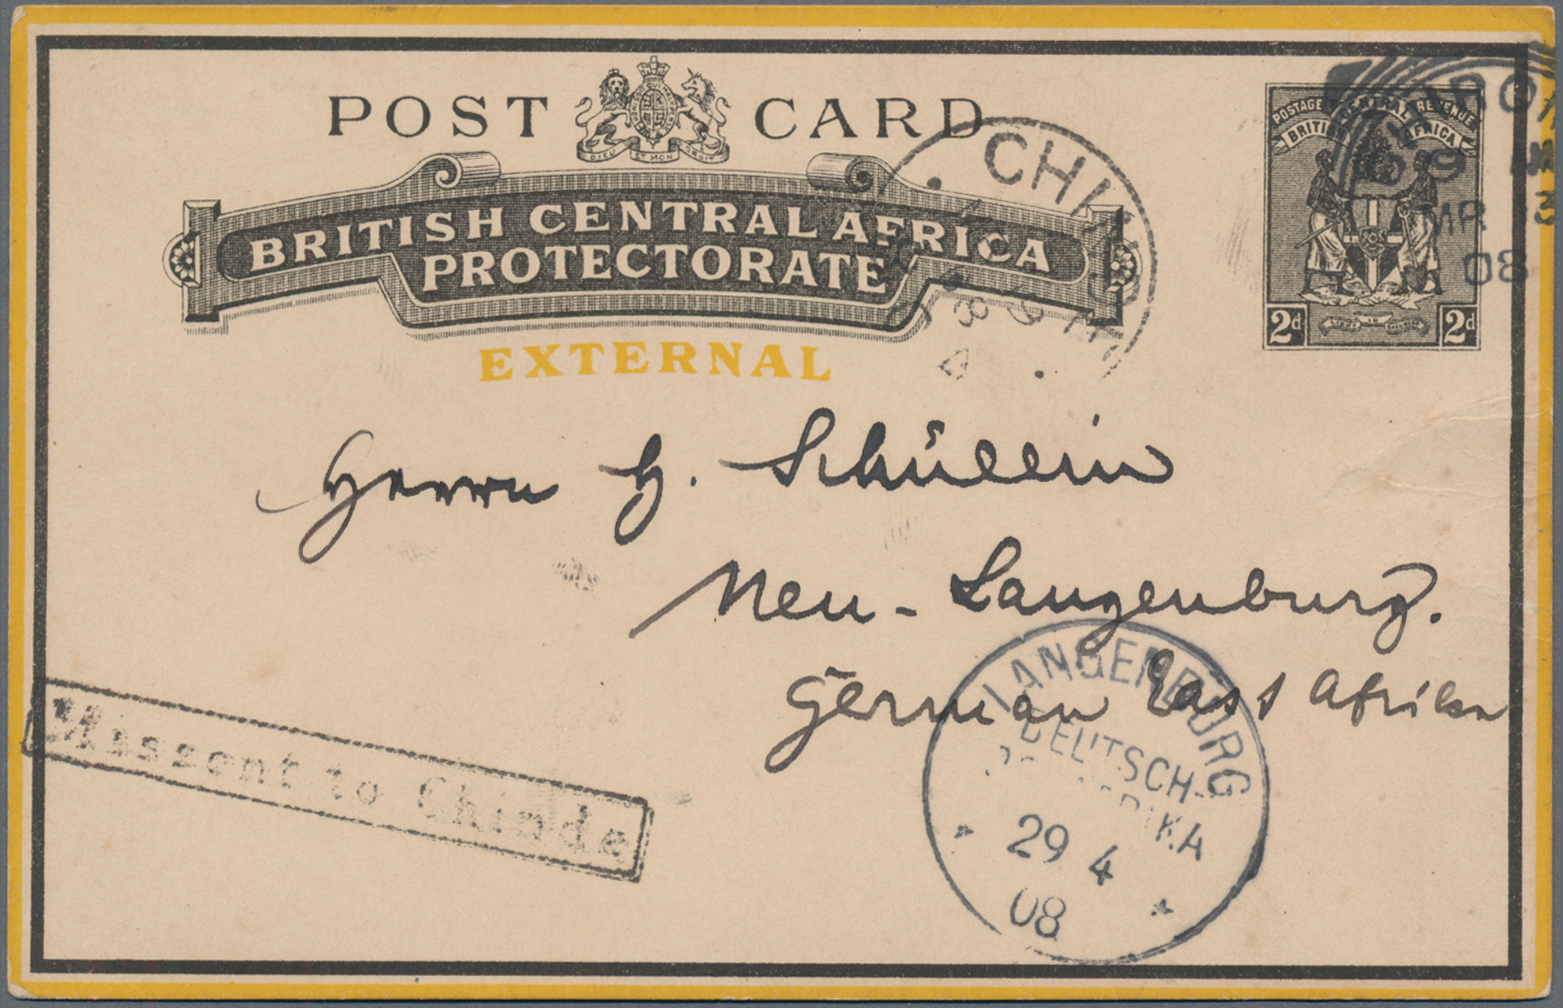 POST CARD
DIEU ET MON DROIT
BRITISH CENTRAL AFRICA
PROTECTORATE
EXTERNAL
POSTAGE REVENUE
BRITISH CENTRAL AFRICA
2d 2d
MR
08
Herrn H. Schüllin
Neu-Langenburg.
German East Afrika
Missent to Chinde
LANGENBURG
DEUTSCH-
29 4
08